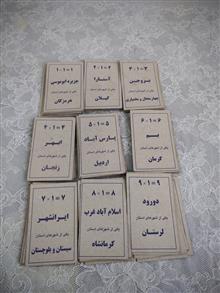 ۱-۰۱=۱
جزیره ابوموسی
یکی از شهرهای استان
هرمزگان
۲-۰۱=۲
آستارا
یکی از شهرهای استان
گیلان
۳-۰۱=۳
بروجن
یکی از شهرهای استان
چهارمحال و بختیاری
۴-۰۱=۴
ابهر
یکی از شهرهای استان
زنجان
۵-۰۱=۵
پارس آباد
یکی از شهرهای استان
اردبیل
۶-۰۱=۶
بم
یکی از شهرهای استان
کرمان
۷-۰۱=۷
ایرانشهر
یکی از شهرهای استان
سیستان و بلوچستان
۸-۰۱=۸
اسلام آباد غرب
یکی از شهرهای استان
کرمانشاه
۹-۰۱=۹
دورود
یکی از شهرهای استان
لرستان